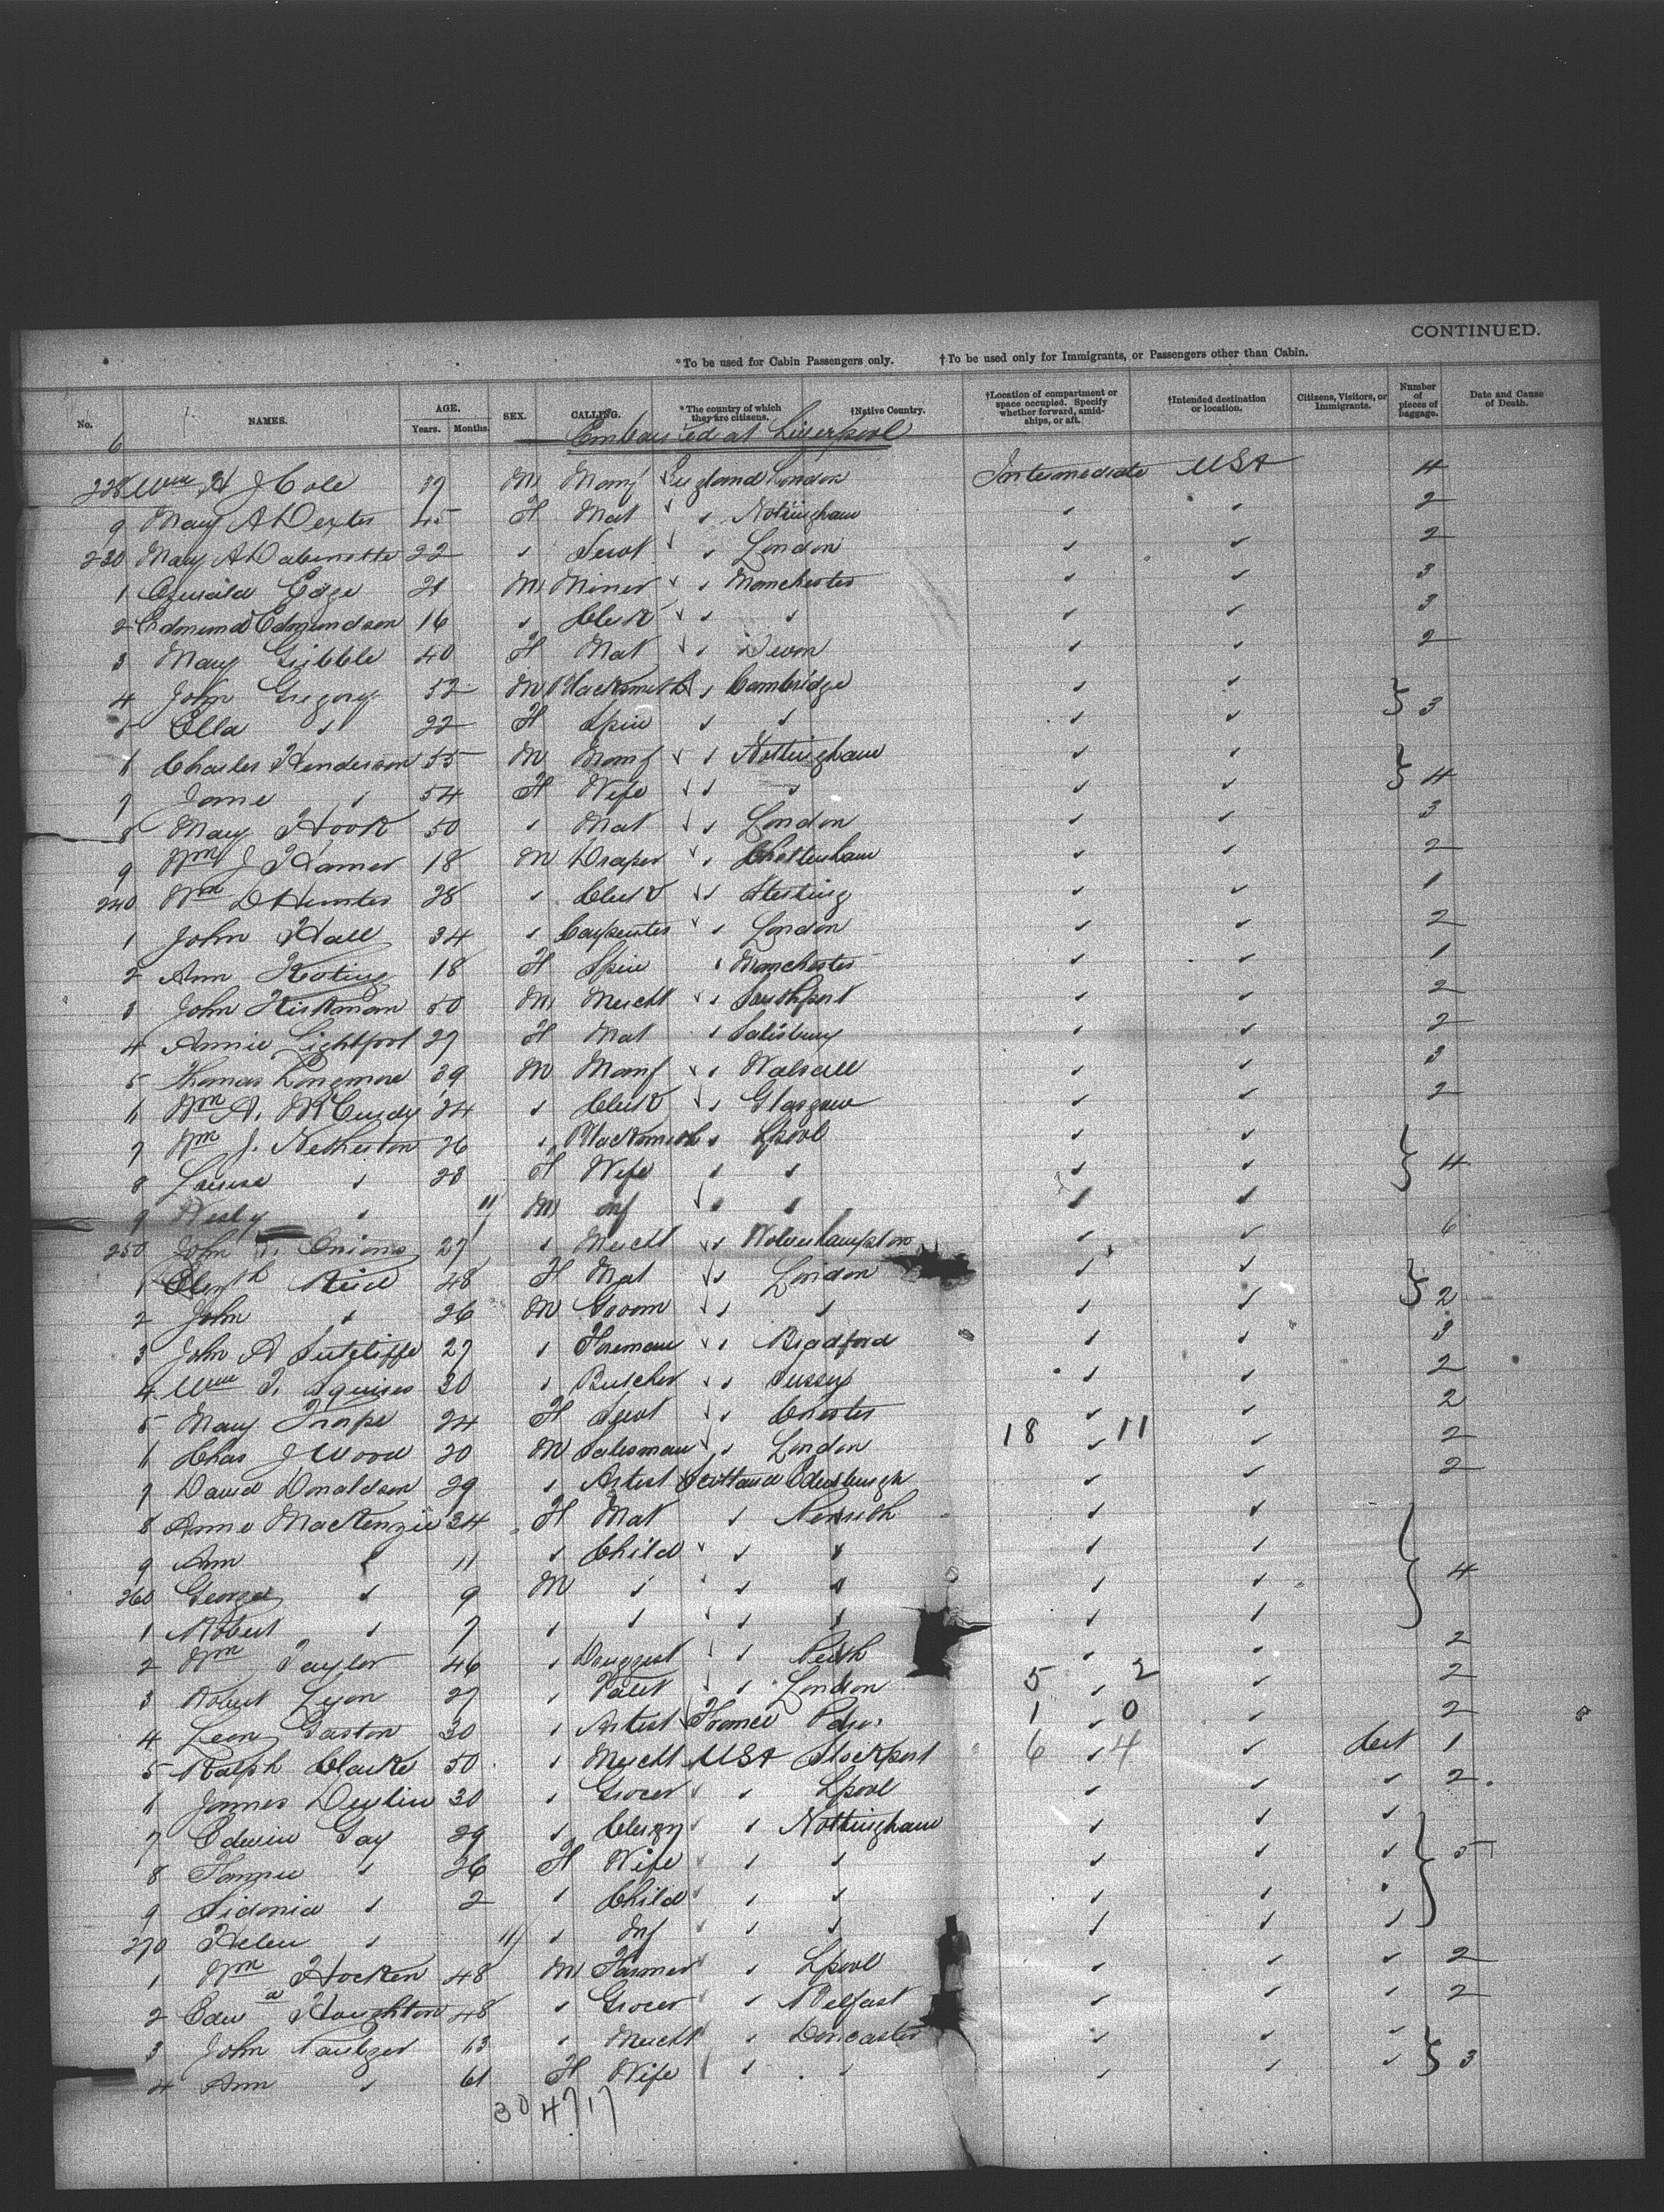 CONTINUED.
*To be used for Cabin Passengers only. †To be used only for Immigrants, or Passengers other than Cabin.
No. NAMES. AGE. Years. Months. SEX. CALLING. *The country of which they are citizens. †Native Country. †Location of compartment or space occupied. Specify whether forward, amidships, or aft. †Intended destination or location. Citizens, Visitors, or Immigrants. Number of pieces of baggage. Date and Cause of Death.
6 Embarked at Liverpool
228 Wm H J Cole 37 M Manf England London Intermediate USA 4
9 Mary A Dexter 45 F Mat " Nottingham " " 2
230 Mary A Dabinette 22 " Servt " London " " 2
1 Oswald Edge 21 M Miner " Manchester " " 3
2 Edmund Edmundson 16 " Clerk " " " " 3
3 Mary Gribble 40 F Mat " Devon " " 2
4 John Gregory 52 M Blacksmith " Cambridge " "
5 Ella " 22 F Spin " " " " } 3
6 Charles Henderson 55 M Manf " Nottingham " "
7 Jane " 54 F Wife " " " " } 4
8 Mary Hook 50 " Mat " London " " 3
9 Wm J Hamer 18 M Draper " Cheltenham " " 2
240 Wm D Hunter 28 " Clerk " Sterling " " 1
1 John Hall 34 " Carpenter " London " " 2
2 Ann Keating 18 F Spin " Manchester " " 1
3 John Kirkman 50 M Mercht " Southport " " 2
4 Annie Lightfoot 27 F Mat " Salisbury " " 2
5 Thomas Longmore 39 M Manf " Walsall " " 3
6 Wm A. McCurdy 24 " Clerk " Glasgow " " 2
7 Wm J. Netherton 26 " Blacksmith " Lpool " "
8 Louisa " 23 F Wife " " " " } 4
9 Wesley " 11 M Inf " " " "
250 John T. Onions 27 " Mercht " Wolverhampton " " 6
1 Elizth Reid 48 F Mat " London " "
2 John " 26 M Groom " " " " } 2
3 John A Sutcliffe 27 " Foreman " Bradford " " 3
4 Wm T. Squires 30 " Butcher " Sussex " " 2
5 Mary Thorpe 24 F Servt " Chester " " 2
6 Chas J Wood 20 M Salesman " London 18 " 11 " 2
7 David Donaldson 29 " Artist Scotland Edinburgh " " 2
8 Anne MacKenzie 34 F Mat " " "
9 Ann " 11 " Child " " " "
260 George " 9 M " " " " " } 4
1 Robert " 7 " " " " " "
2 Wm Taylor 46 " Druggist " Perth " " 2
3 Robert Lyon 27 " Valet " London 5 " 2 " 2
4 Leon Gaston 30 " Artist France Paris 1 " 0 " 2
5 Ralph Clarke 50 " Mercht USA Stockport 6 " 4 " Cit 1
6 James Devlin 30 " Grocer " Lpool " " " 2
7 Edwin Gay 29 " Clergy " Nottingham " " "
8 Fannie " 26 F Wife " " " " " } 5
9 Sidonia " 2 " Child " " " " "
270 Helen " 11 " Inf " " " " "
1 Wm Hocken 48 M Farmer " Lpool " " " 2
2 Edwd Houghton 48 " Grocer " Belfast " " " 2
3 John 63 " Mercht " Doncaster " " "
4 Ann " 61 F Wife " " " " " } 3
30 47 17